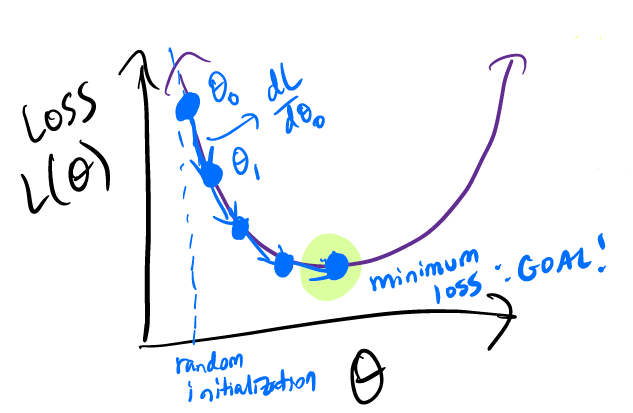 LOSS
L(θ)
θ₀
dL
dθ₀
θ₁
minimum
loss : GOAL!
random
initialization
θ